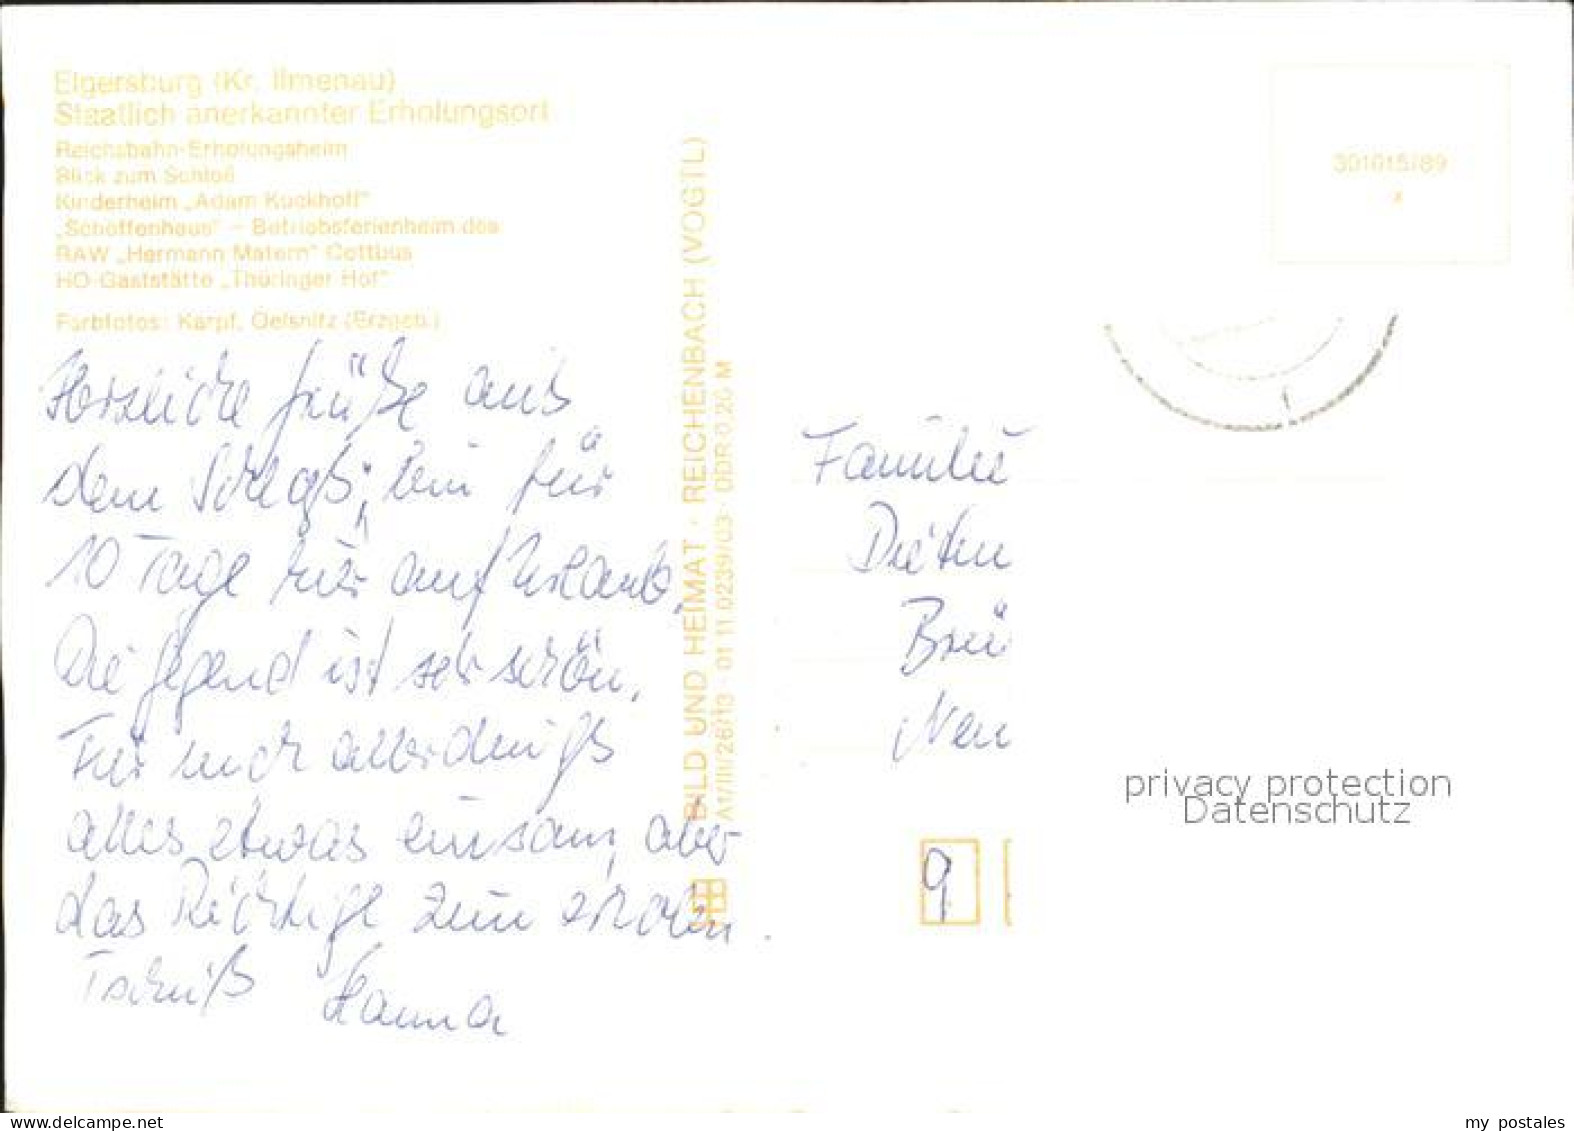 Elgersburg (Kr. Ilmenau)
Staatlich anerkannter Erholungsort
Reichsbahn-Erholungsheim
Blick zum Schloß
Kinderheim „Adam Kuckhoff“
„Schöffenhaus“ – Betriebsferienheim des
RAW „Hermann Matern“ Cottbus
HO-Gaststätte „Thüringer Hof“
Farbfotos: Karpf, Oelsnitz (Erzgeb.)
Herzliche Grüße aus
dem Schloß, bin für
10 Tage hier auf Urlaub.
Die Gegend ist sehr schön.
Für mich allerdings
alles etwas einsam, aber
das Richtige zum erholen.
Tschüß Hanna
BILD UND HEIMAT · REICHENBACH (VOGTL)
A1/III/26/13 · 01 11 0239/03 · DDR 0,20 M
301015/89
Familie
Dieten
Brü
Neu
9
privacy protection
Datenschutz
my postales